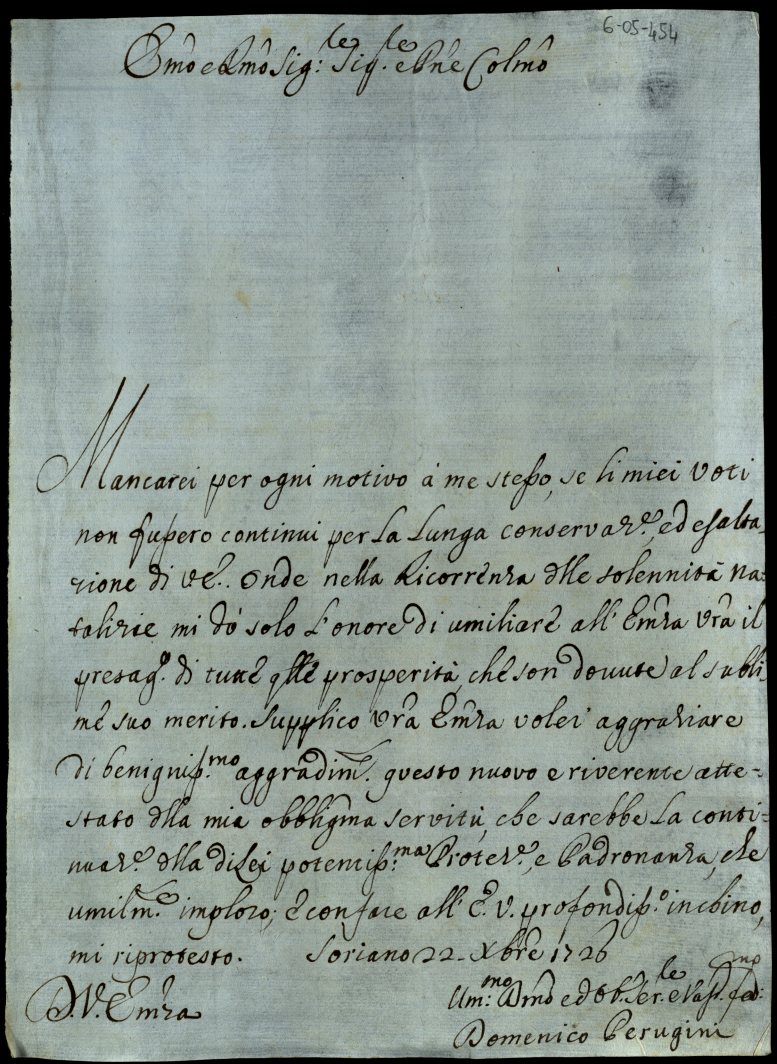 6-05-454
Emo e Rmo Sig:re Sig.re e Pne Colmo
Mancarei per ogni motivo à me stesso, se li miei voti
non fussero continui per la lunga conservaz.e, ed esalta-
zione di V.E. Onde nella Ricorrenza dlle solennità na-
talizie mi dò solo l'onore di umiliare all'Emza vra il
presag.o di tutte qlle prosperità, che son dovute al subli-
me suo merito. Supplico vra Emza voler aggraziare
di beniguiss.mo aggradim.to questo nuovo e riverente atte-
stato dlla mia obbligma servitù, che sarebbe la conti-
nuaz.e dlla di Lei potentiss:ma Protez.e, e Padronanza, che
umilm.te imploro; e con fare all'E.V. profondiss.o inchino,
mi riprotesto. Soriano 22. Xbre 1726
D.V. Emza
Um:mo Dmo ed Ob. Ser.le e Vass. fed:mo
Domenico Perugini